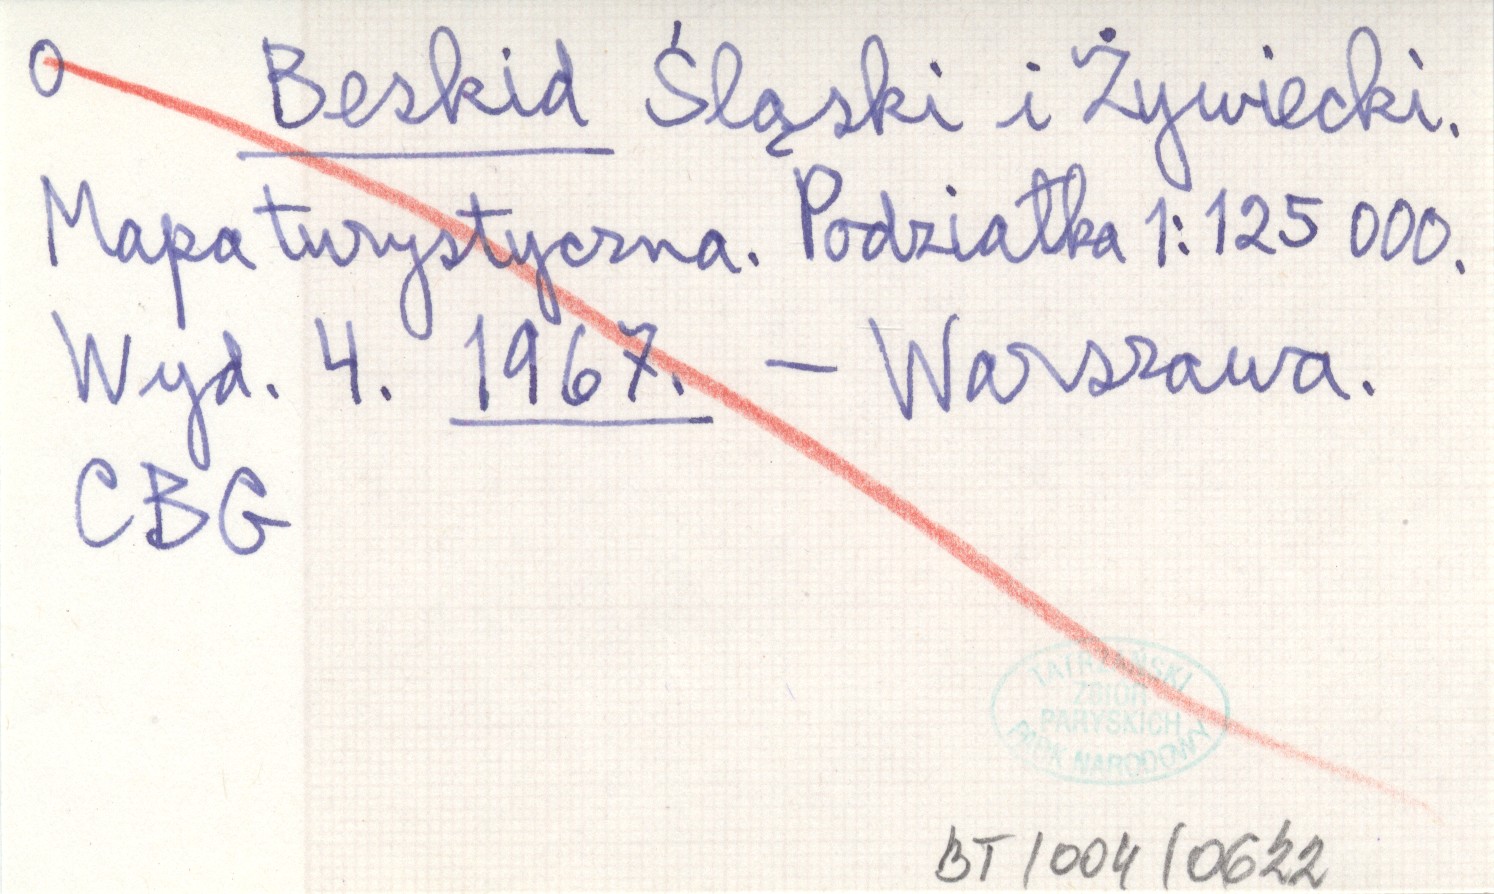 O Beskid Śląski i Żywiecki.
Mapa turystyczna. Podziałka 1:125 000.
Wyd. 4. 1967. — Warszawa.
CBG
TATRZAŃSKI
ZBIÓR
PARYSKICH
PARK NARODOWY
BT/004/0622